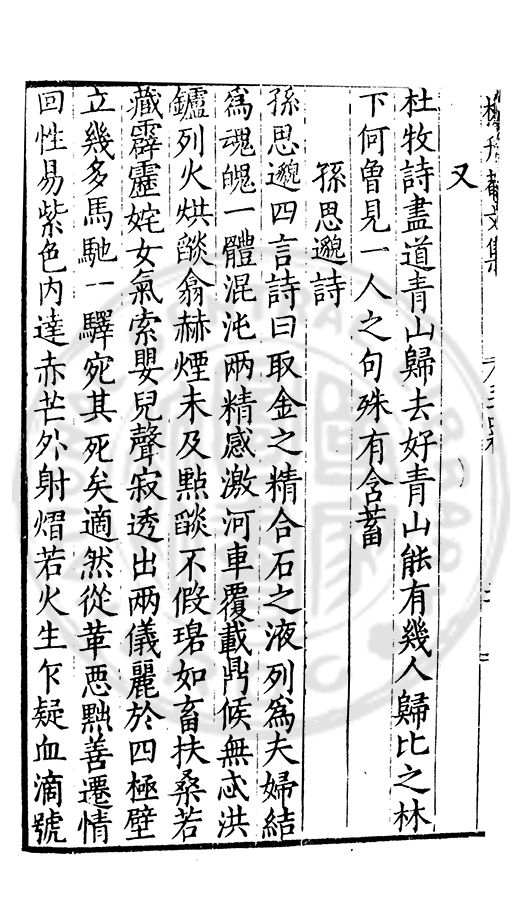 又
杜牧詩盡道青山歸去好青山能有幾人歸比之林
下何曽見一人之句殊有含蓄
孫思邈詩
孫思邈四言詩曰取金之精合石之液列爲夫婦結
爲魂魄一體混沌兩精感激河車覆載鼎候無忒洪
鑪列火烘𦦨翕赫煙未及黔𦦨不假碧如畜扶桑若
藏霹靂姹女氣索嬰兒聲寂透出兩儀麗於四極壁
立幾多馬馳一驛宛其死矣適然從革惡黜善遷情
回性易紫色內達赤芒外射熠若火生乍疑血滴號